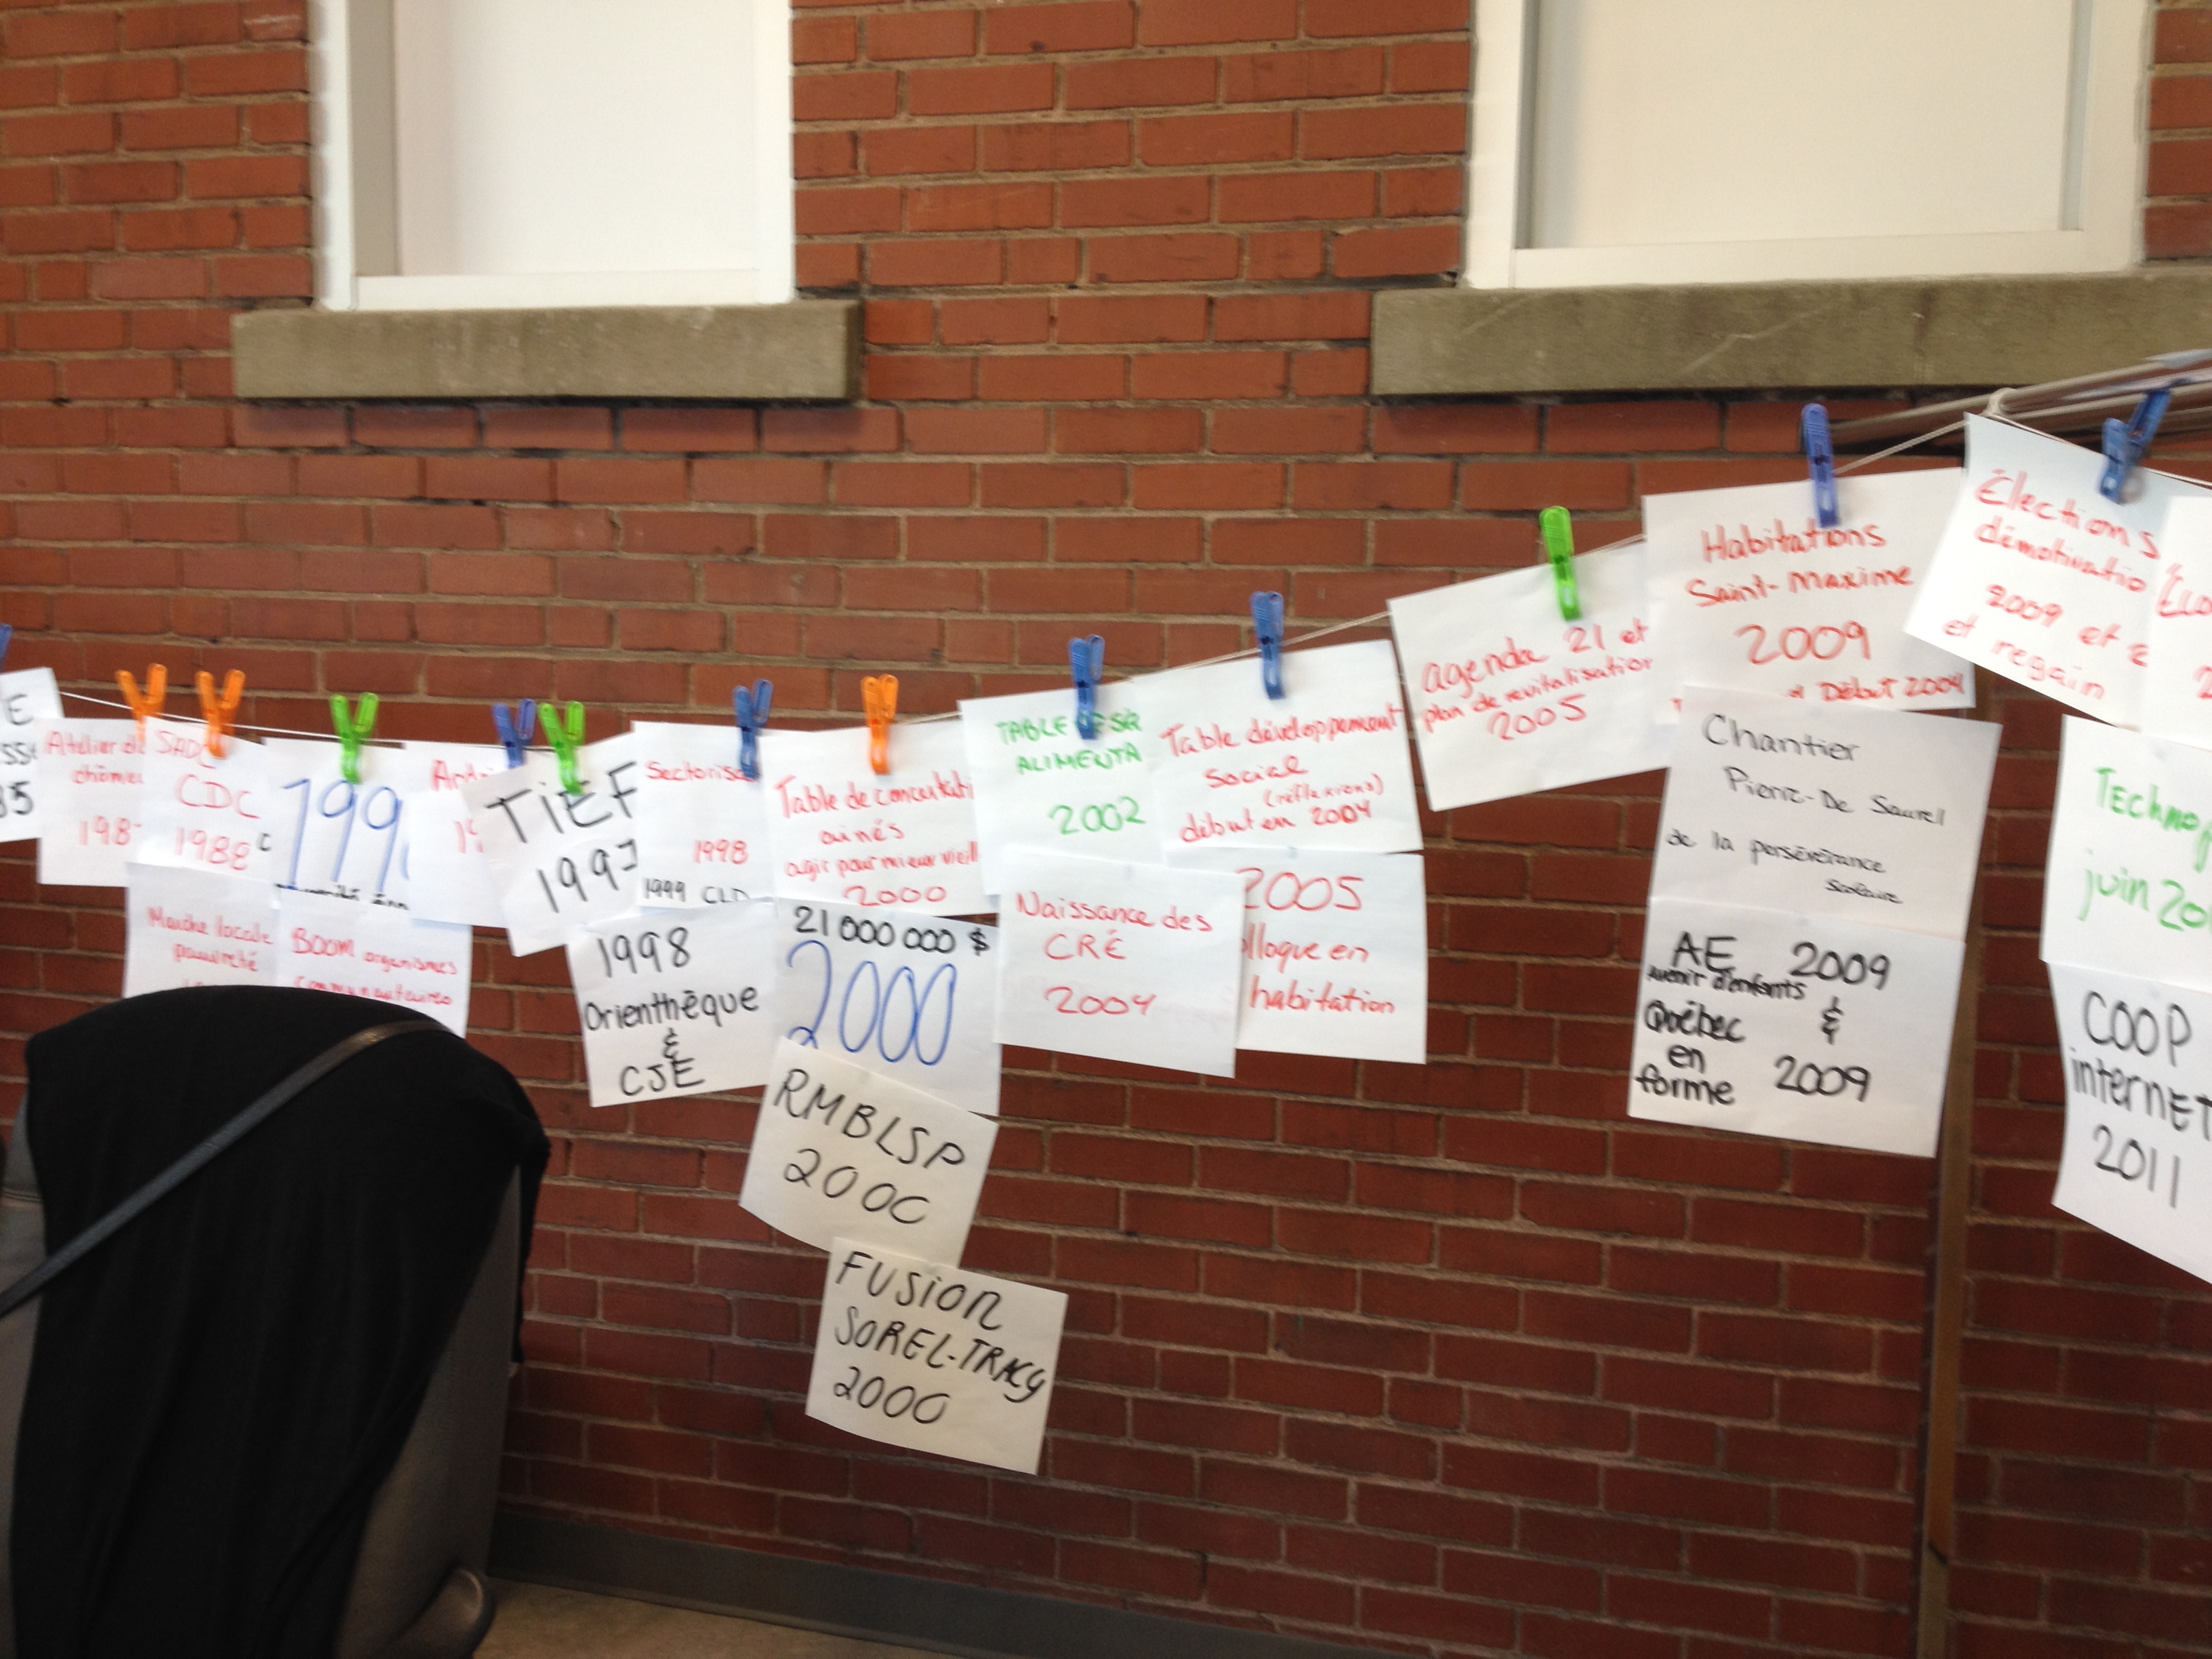 E
85
Atelier de
198
SADC
CDC
1988
Marche locale
pauvreté
199
BOOM organismes
communautaires
TIEF
1997
Sectorisa
1998
1999 CLD
1998
Orienthèque
&
CJE
Table de concertati
ainés
agir pour mieux vieil
2000
21 000 000 $
2000
RMBLSP
2000
FUSION
SOREL-TRACY
2000
TABLE
ALIMENTA
2002
Naissance des
CRÉ
2004
Table développement
social
(réflexions)
début en 2004
2005
lloque en
habitation
agenda 21 et
plan de revitalisation
2005
Habitations
Saint-Maxime
2009
Début 2004
Chantier
Pierre-De Saurel
de la persévérance
scolaire
AE 2009
avenir d'enfants
&
Québec
en
forme 2009
Élections
démotivatio
2009 et
et regain
Éco
Techno
juin 20
COOP
internet
2011